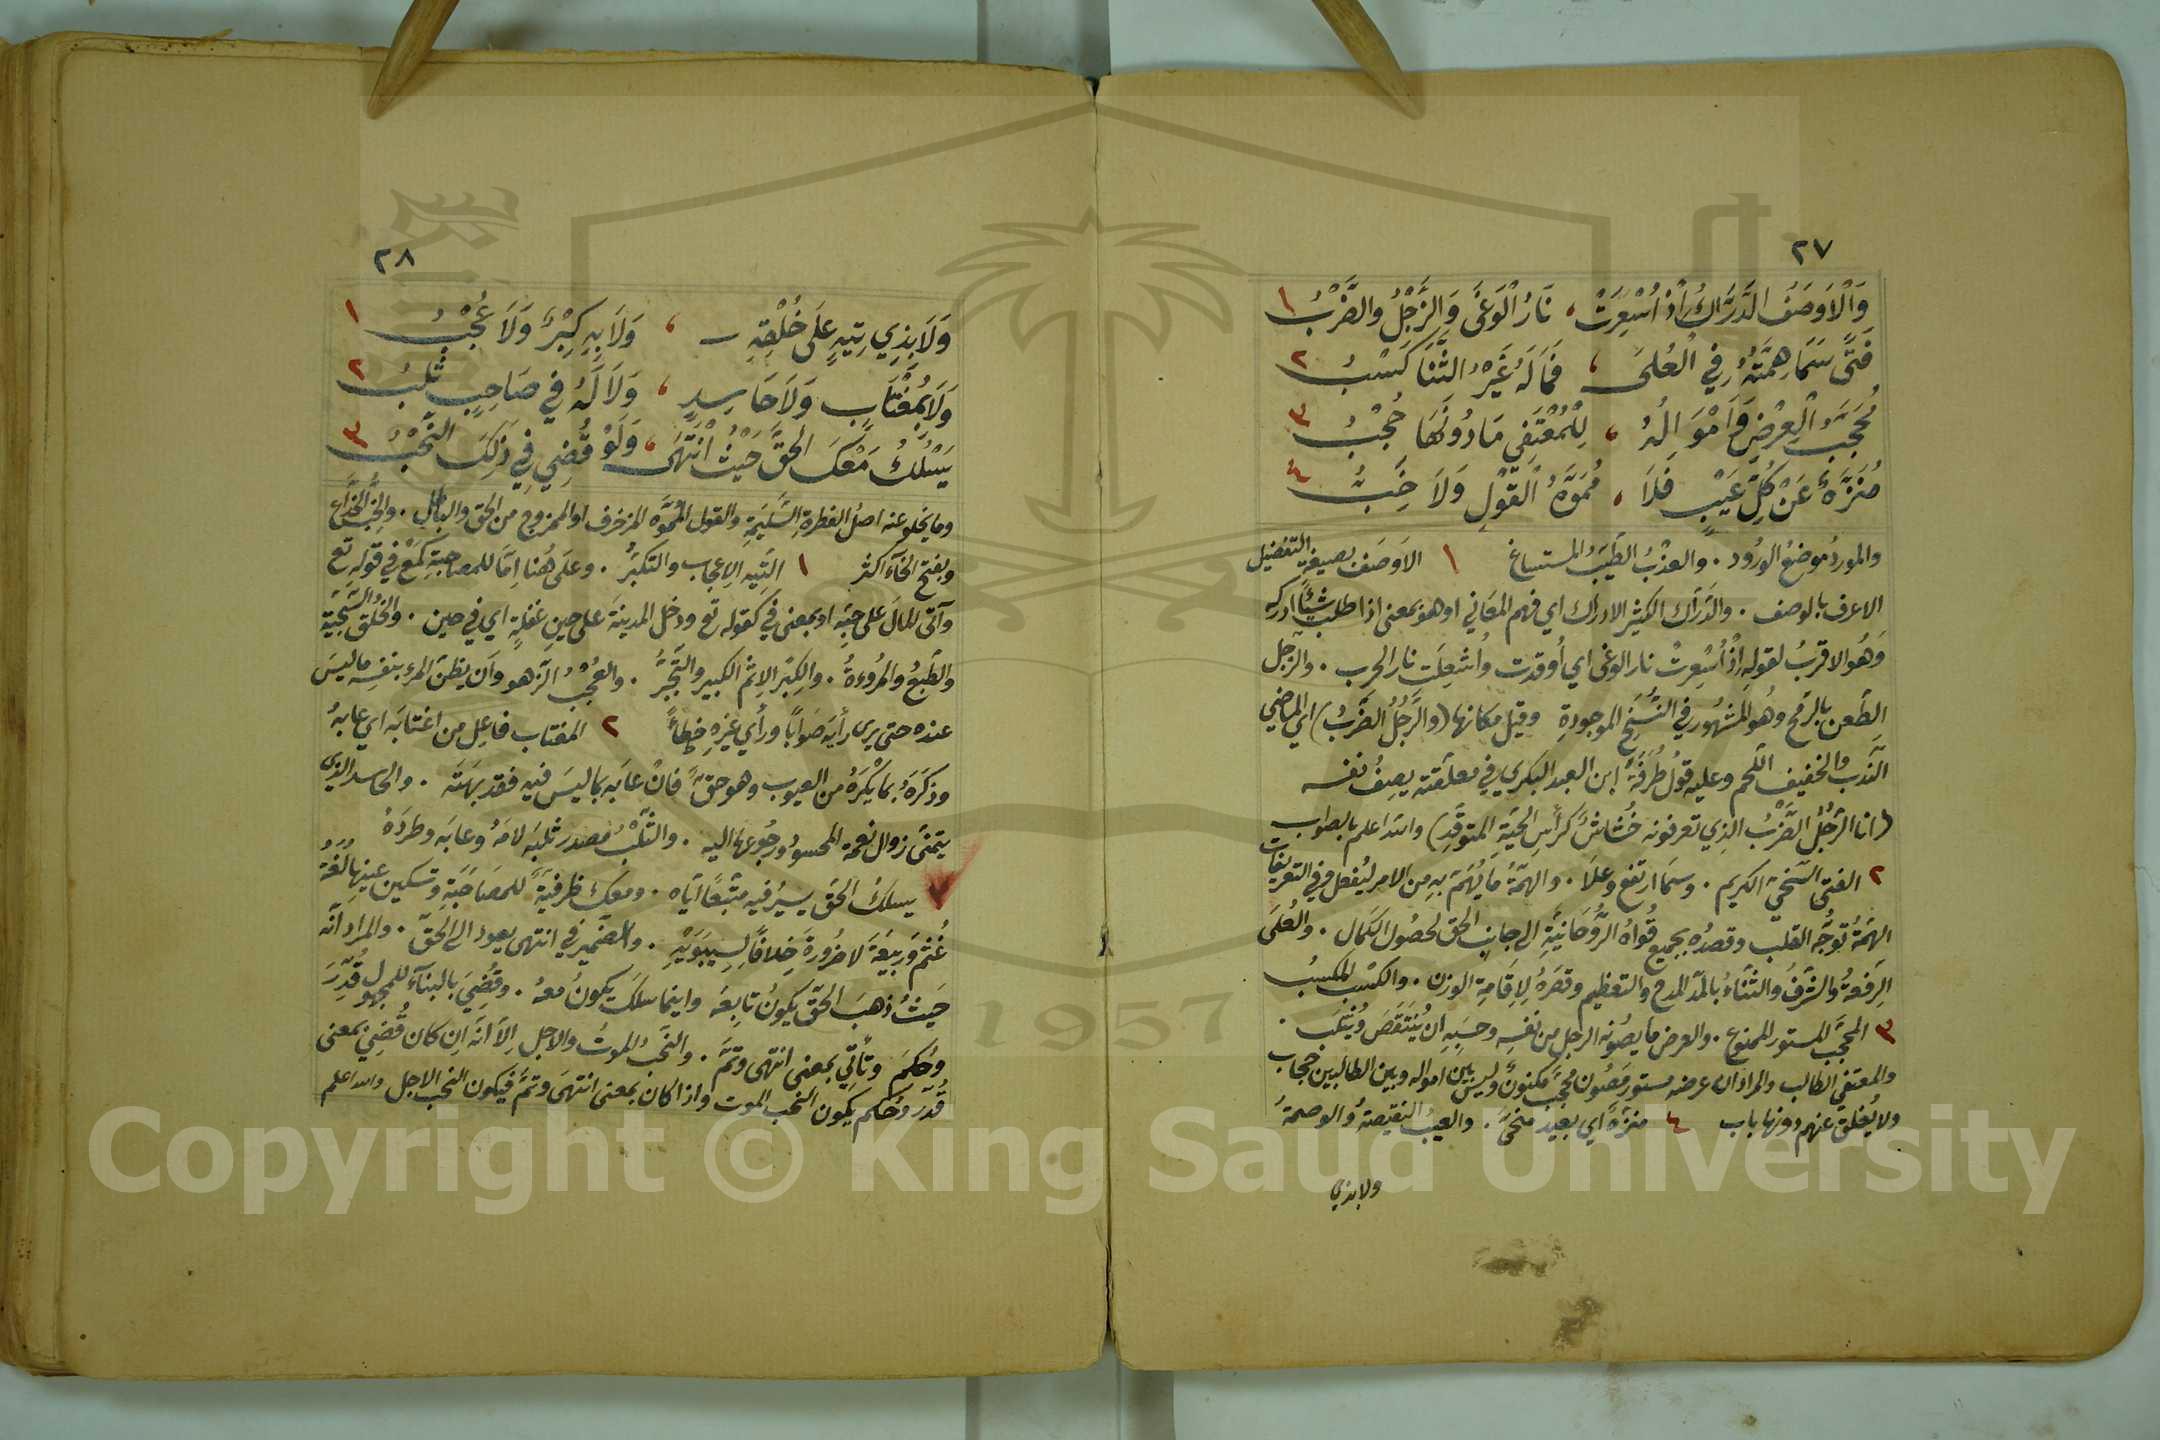 ٢٧
وَالْاَوصَفُ الدَّرَّاكُ اِذْ اُسْعِرَتْ ، نَارُ الْوَغَى وَالزَّجْلُ والضَّرْبُ ١
فَتًى سَمَا هِمَّتُهُ فِي الْعُلَى ، فَمَا لَهُ غَيْرُ الثَّنَا كَسْبُ ٢
مُحَجَّبُ الْعِرْضِ وَاَمْوَالُهُ ، لِلْمُعْتَفِي مَا دُونَهَا حُجْبُ ٣
مُنَزَّهٌ عَنْ كُلِّ عَيْبٍ فَلَا ، مُمَوَّهُ الْقَوْلِ وَلَا خَبُّ ٤
والمورد موضعُ الورُود . والعذْبُ الطَيّبُ المستساغ ١ الاَوصَف بصيغة التفضيل
الاعرف بالوصف . والدَرّاك الكثير الادراك اي فهم المعَاني او هو بمعنى اذا طلب شيئًا ادركه
وَهُو الاقربُ لقولِهِ اِذْ اُسْعِرتْ نار الوغى اي اُوقدت واُشعِلَت نار الحرب . والزّجل
الطَعن بالرّمح وهُو المشهُور في النُسَخ الموجودةِ وقيل مكانها (والرَّجُلُ الضَّرْبُ) اي الماضي
النَدب والخفيف اللّحم وعليه قولُ طُرفَةَ ابن العبد البكري في معلّقته يصِفُ نفسه
(انا الرّجُلُ الضَّرْبُ الذِي تعرفونه خُشاشٌ كرأسِ الحَيّةِ المتوقّدِ) والله اعلم بالصواب
٢ الفتى السّخيّ الكريم . وسَمَا ارتفع وعلَا . والهمّةُ مَا يُهَمّ بهِ من الامر ليُفعل وفي التعريفات
الهمّةُ توجّه القلب وقصدُه بجميع قُواهُ الرَّوحَانيّةِ الى جانب الحق لحصُول الكمال . والعُلَى
الرِفعةُ والشرفُ والثنَاءُ بالمدّ المدح والتعظيم وقصرُهُ لِاِقَامةِ الوزن . والكسْب المكسبُ
٣ المحجّب المستور الممنوع . والعرض ما يصُونه الرجل من نفسِهِ وحسَبِهِ ان يُنتَقَصَ ويُثلَبَ .
والمعتفي الطالب والمراد ان عرضه مستور مَصُون مُحجّب مكنونٌ وليس بين امواله وبين الطالبين حجاب
ولا يُغلق عنهم دونها باب ٤ منزّهٌ اي بعيد منحّىً . والعيبُ النقيصةُ والوصمةُ
ولا بذي
٢٨
وَلَا بِذِي تِيهٍ عَلَى خُلْقِهِ ، وَلَا بِهِ كِبْرٌ وَلَا عُجْبُ ١
وَلَا بِمُغْتَابٍ وَلَا حَاسِدٍ ، وَلَا لَهُ فِي صَاحِبٍ ثَلْبُ ٢
يَسْلُكُ مَعْكَ الحَقَّ حَيْثُ انْتَهَى ، وَلَوْ قُضِي فِي ذَلِكَ النَّحْبُ ٣
وما يخلو عنه اصلُ الفطرةِ السَّليمَةِ والقول المُمَوَّه المزخرف او الممزوج من الحق والباطل . والخِبُّ الخدَّاع
وبفتح الخَآء اكثر ١ التِيه الاِعجاب والتكبُّر . وعلَى هُنا اِمّا للمصاحبَةِ كمعْ في قولهِ تع
وآتى المالَ على حبّهِ او بمعنى في كقوله تع ودخل المدينةَ على حينِ غفلةٍ اي في حين . والخُلقُ السَّجيّة
والطَبعُ والمُروءةُ . والكِبْرُ الاِثمُ الكبير والتَجَبُّرُ . والعُجْبُ الزّهو وَاَن يظنّ المرءُ بنفسِهِ ما ليسَ
عنده حتى يرى رأيَه صَوابًا ورأيَ غيرِهِ خطاءً ٢ المغتاب فاعِل من اغتابَه اي عابهُ
وذكَرَهُ بما يكْرَهُ من العيوب وهو حقّ فانْ عابَه بما ليسَ فيهِ فقد بهَتَه . والحاسد الذي
يتمنّى زوال نعمة المحسود ورجُوعها اليه . والثَلْبُ مصدر ثلبَه لامَهُ وعابَه وطردَهُ
يسلك الحَق يسيرُ فيه متّبعًا ايّاه . ومعك ظرفيةٌ للمصَاحَبَةِ وتسكين عينِها لُغَةُ
غُنْمٍ وَربيعَةَ لا ضرُورةَ خِلافًا لِسِيبَوَيْهِ . والضَمير في انتهى يعود الى الحَقّ . والمراد انّه
حَيثُ ذهبَ الحَقّ يكونُ تابِعَه واينما سلَكَ يكونُ معهُ . وقُضِيَ بالبنآءِ للمجهولِ قُدِّرَ
وحُكمَ وتأتي بمعنى انتهى وتمَّ . والنَحبُ الموتُ والاجل اِلّا انّه اِن كان قُضِيَ بمعنى
قُدّر وحُكم يكون النحب الموت واذا كان بمعنى انتهَى وتمَّ فيكون النحب الاجل والله اعلم
1957
Copyright © King Saud University